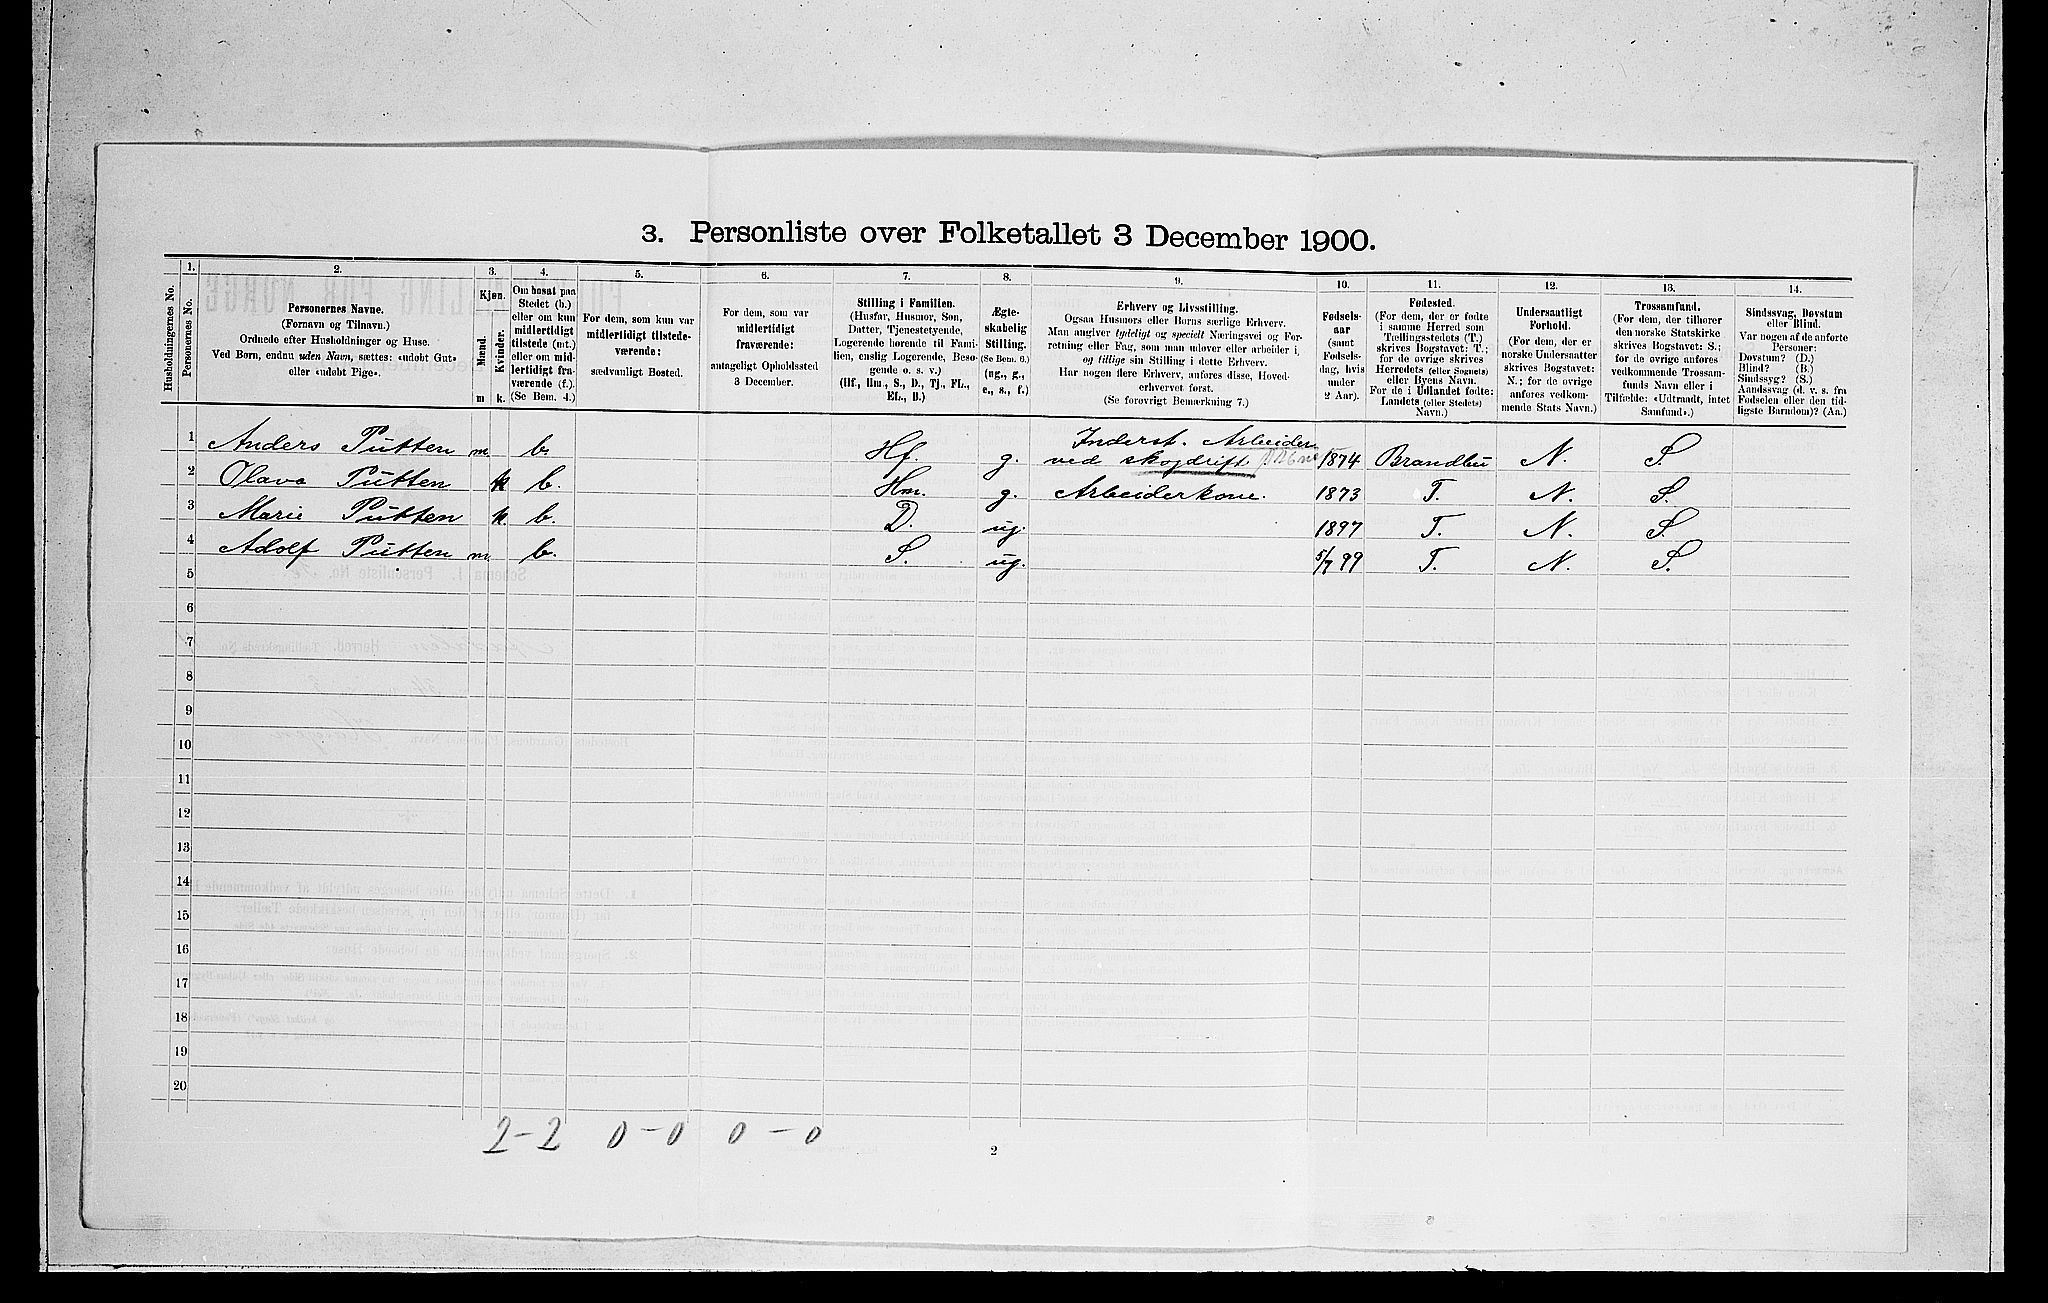 3. Personliste over Folketallet 3 December 1900.
Husholdningernes No.
1.
Personernes No.
2.
Personernes Navne.
(Fornavn og Tilnavn.)
Ordnede efter Husholdninger og Huse.
Ved Børn, endnu uden Navn, sættes: «udøbt Gut»
eller «udøbt Pige».
3.
Kjøn.
Mænd.
Kvinder.
m
k.
4.
Om bosat paa
Stedet (b.)
eller om kun
midlertidigt
tilstede (mt.)
eller om mid-
lertidigt fra-
værende (f.).
(Se Bem. 4.)
5.
For dem, som kun var
midlertidigt tilstede-
værende:
sædvanligt Bosted.
6.
For dem, som var
midlertidigt
fraværende:
antageligt Opholdssted
3 December.
7.
Stilling i Familien.
(Husfar, Husmor, Søn,
Datter, Tjenestetyende,
Logerende hørende til Fami-
lien, enslig Logerende, Besø-
gende o. s. v.)
(Hf., Hm., S., D., Tj., FL.,
EL., B.)
8.
Ægte-
skabelig
Stilling.
(Se Bem. 6.)
(ug., g.,
e., s., f.)
9.
Erhverv og Livsstilling.
Ogsaa Husmors eller Børns særlige Erhverv.
Man angiver tydeligt og specielt Næringsvei og For-
retning eller Fag, som man udøver eller arbeider i,
og tillige sin Stilling i dette Erhverv.
Har nogen flere Erhverv, anføres disse, Hoved-
erhvervet først.
(Se forøvrigt Bemærkning 7.)
10.
Fødsels-
aar
(samt
Fødsels-
dag, hvis
under
2 Aar).
11.
Fødested.
(For dem, der er fødte
i samme Herred som
Tællingsstedets (T.)
skrives Bogstavet: T.;
for de øvrige skrives
Herredets (eller Sognets)
eller Byens Navn.
For de i Udlandet fødte:
Landets (eller Stedets)
Navn.)
12.
Undersaatligt
Forhold.
(For dem, der er
norske Undersaatter
skrives Bogstavet:
N.; for de øvrige
anføres vedkom-
mende Stats Navn.)
13.
Trossamfund.
(For dem, der tilhører
den norske Statskirke
skrives Bogstavet: S.;
for de øvrige anføres
vedkommende Trossam-
funds Navn eller i
Tilfælde: «Udtraadt, intet
Samfund».)
14.
Sindssvag, Døvstum
eller Blind.
Var nogen af de anførte
Personer:
Døvstum? (D.)
Blind? (B.)
Sindssyg? (S.)
Aandssvag (d. v. s. fra
Fødselen eller den tid-
ligste Barndom)? (Aa.)
1 Anders Putten m b. Hf. g. Inderst. Arbeider
ved skogdrift 1874 Brandbu N. S.
2 Olava Putten k b. Hm. g. Arbeiderkone. 1873 T. N. S.
3 Marie Putten k. b. D. ug. 1897 T. N. S.
4 Adolf Putten m b. S. ug. 5/7 99 T. N. S.
5
6
7
8
9
10
11
12
13
14
15
16
17
18
19
20
2-2 0-0 0-0
2